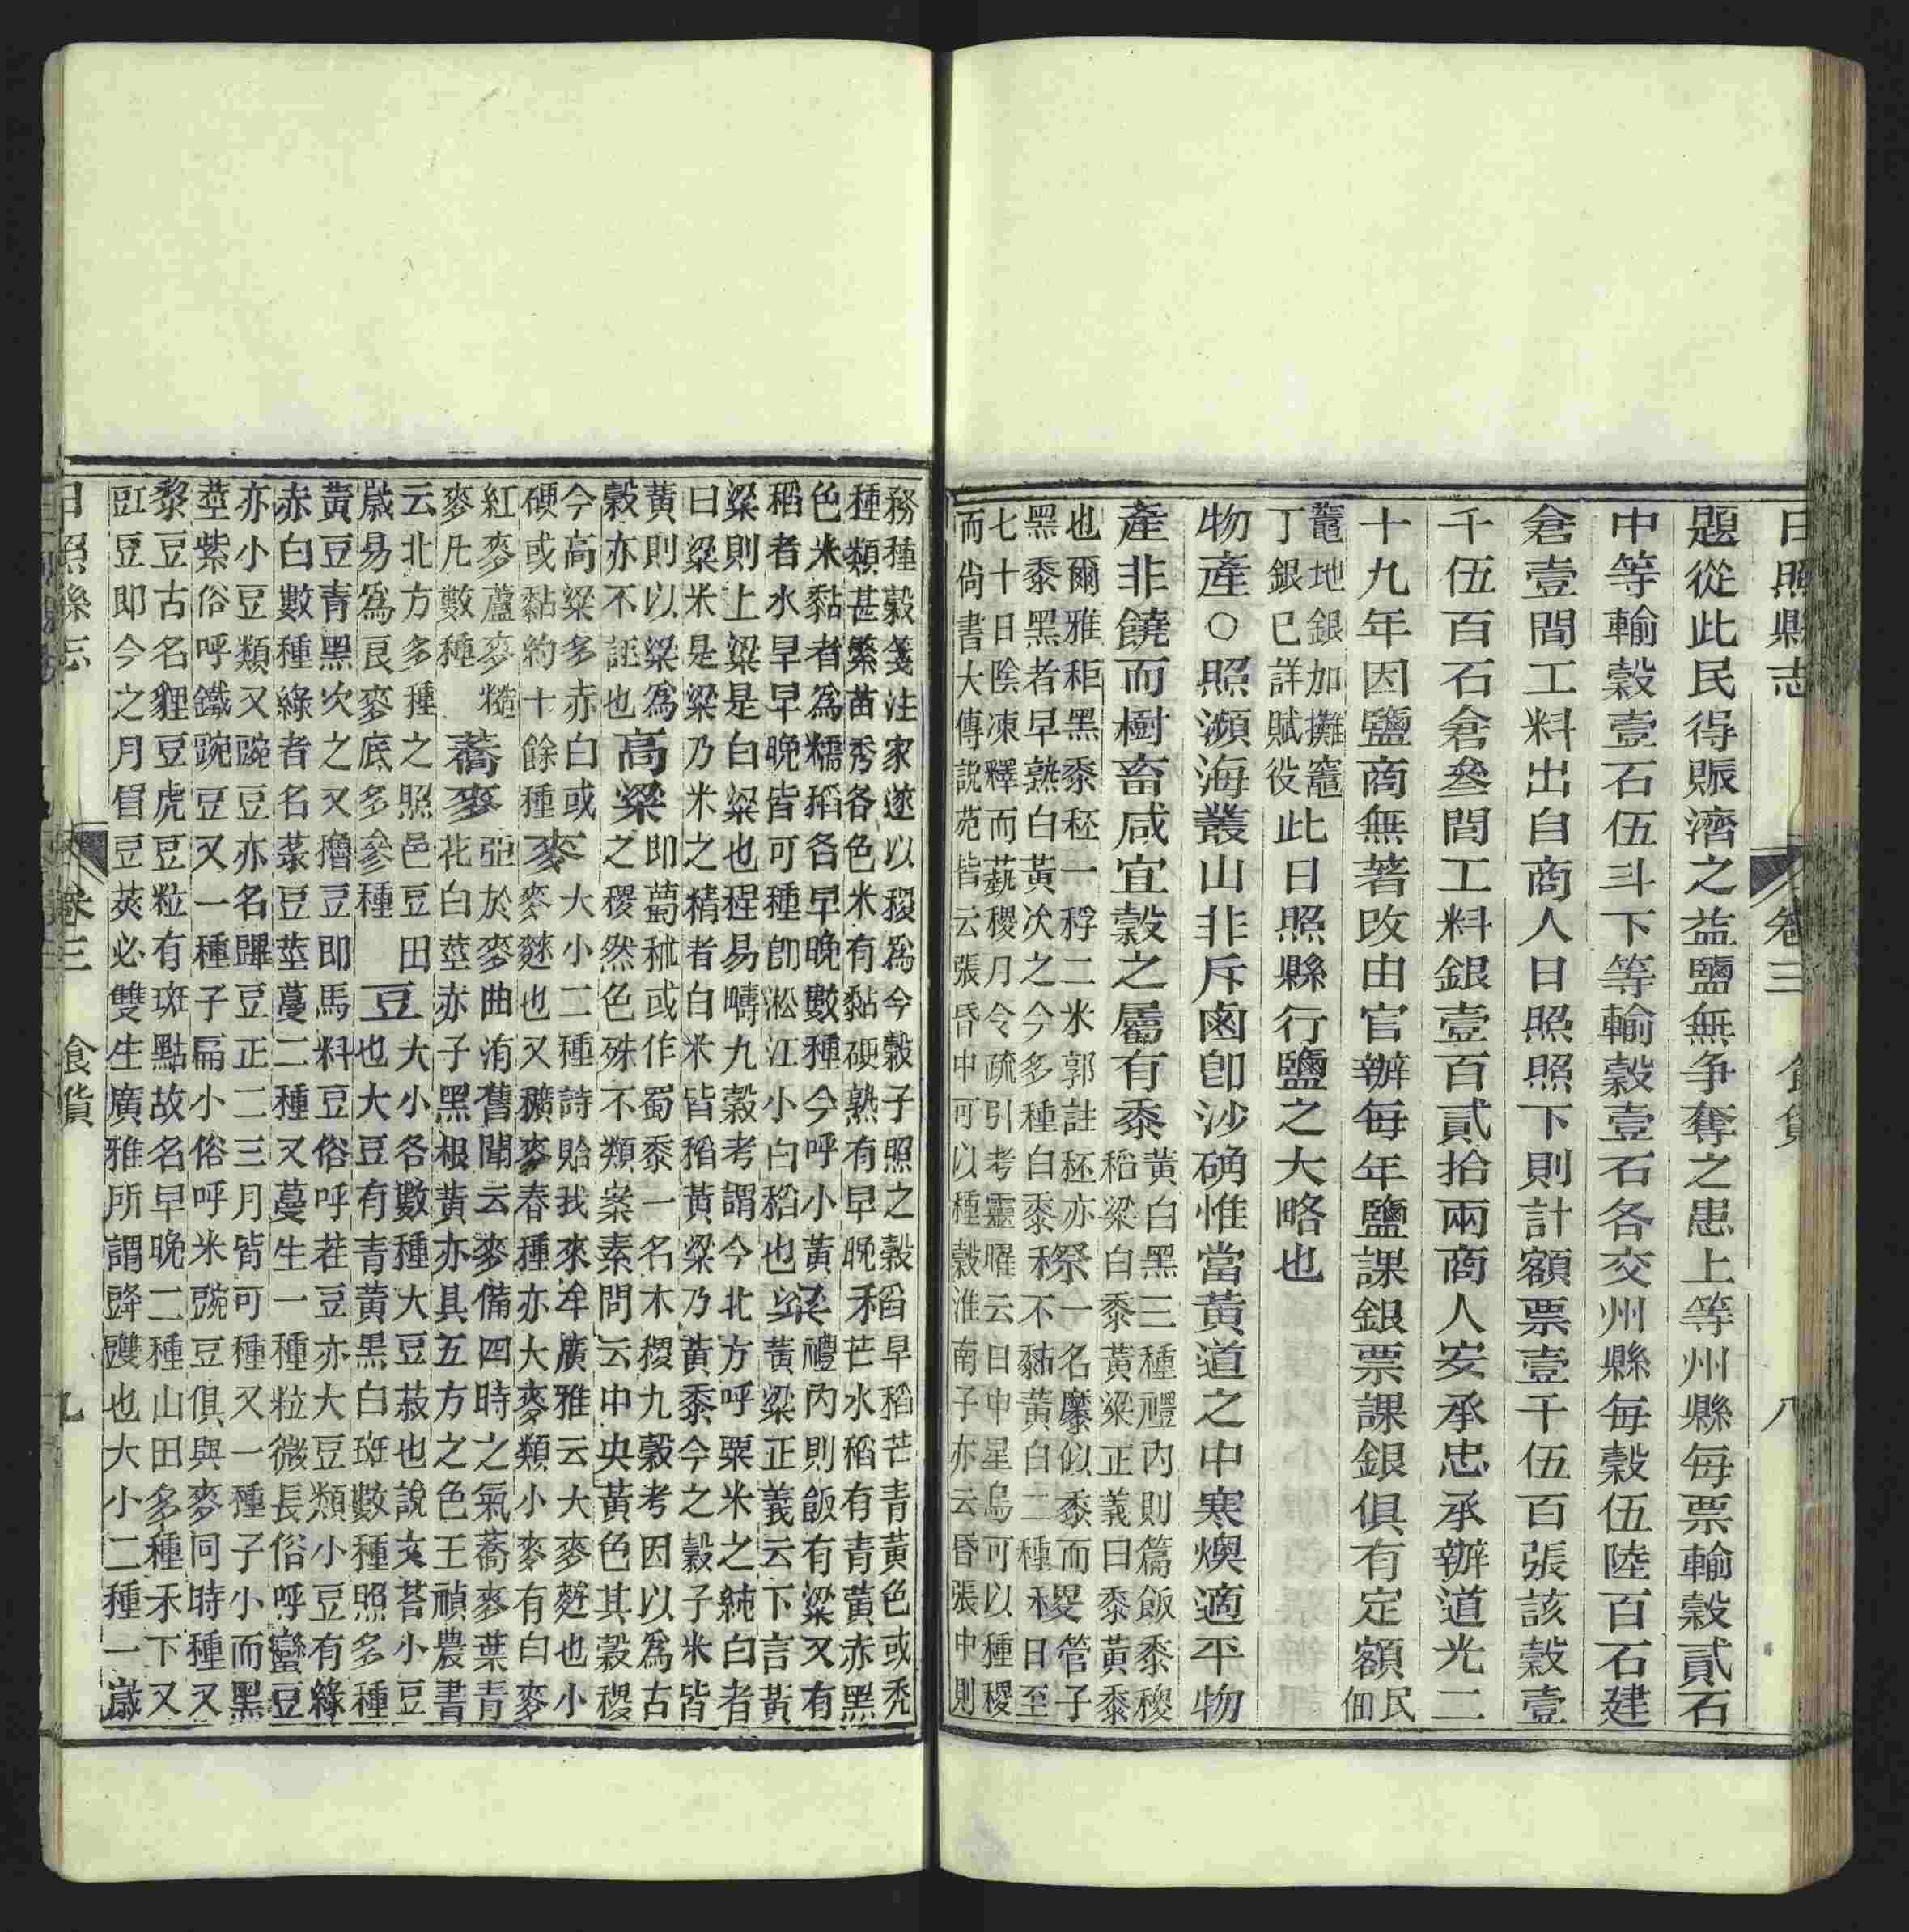 日照縣志 卷三 食貨 八
題從此民得賑濟之益鹽無争奪之患上等州縣每票輸穀貳石
中等輸穀壹石伍斗下等輸穀壹石各交州縣每穀伍陸百石建
倉壹間工料出自商人日照照下則計額票壹千伍百張該穀壹
千伍百石倉叁間工料銀壹百貳拾兩商人安承忠承辦道光二
十九年因鹽商無著改由官辦每年鹽課銀票課銀俱有定額民佃
竈地銀加攤竈丁銀已詳賦役此日照縣行鹽之大略也
物產○照瀕海叢山非斥鹵卽沙确惟當黃道之中寒燠適平物
產非饒而樹畜咸宜穀之屬有黍黃白黑三種禮內則篇飯黍稷稻粱白黍黃粱正義曰黍黃黍
也爾雅秬黑黍秠一稃二米郭註秠亦黑黍黑者早熟白黃次之今多種白黍穄一名穈似黍而不黏黃白二種稷管子日至
七十日陰凍釋而蓺稷月令疏引考靈曜云日中星鳥可以種稷
而尚書大傳說苑皆云張昏中可以種穀淮南子亦云昏張中則
務種穀箋注家遂以稷爲今穀子照之穀種類甚繁苗秀各色米有黏硬熟有早晚稻早稻芒青黃色或禿芒水稻有青黃赤黑
色米黏者爲糯稻各早晚數種今呼小黃稻者水旱早晚皆可種卽淞江小白稻也粱禮內則飯有粱又有黃粱正義云下言黃
粱則上粱是白粱也程易疇九穀考謂今北方呼粟米之純白者
曰粱米是粱乃米之精者白米皆稻黃粱乃黃黍今之穀子米皆
黃則以粱爲穀亦不誣也高粱即薥秫或作蜀黍一名木稷九穀考因以爲古之稷然色殊不類案素問云中央黃色其穀稷
今高粱多赤白或硬或黏約十餘種麥大小二種詩貽我來牟廣雅云大麥麰也小麥麳也又穬麥春種亦大麥類小麥有白麥
紅麥蘆麥䊫麥凡數種蕎麥亞於麥曲洧舊聞云麥備四時之氣蕎麥葉青花白莖赤子黑根黃亦具五方之色王禎農書
云北方多種之照邑豆田歲易爲良麥底多參種豆大小各數種大豆菽也說文荅小豆也大豆有青黃黑白斑數種照多種
黃豆青黑次之又穭豆即馬料豆俗呼茬豆亦大豆類小豆有綠
赤白數種綠者名菉豆莖蔓二種又蔓生一種粒微長俗呼蠻豆
亦小豆類又豌豆亦名豆正二三月皆可種又一種子小而黑
莖紫俗呼鐵豌豆又一種子扁小俗呼米豌豆俱與麥同時種又
黎豆古名貍豆虎豆粒有斑點故名早晚二種山田多種禾下又
豇豆即今之月眉豆莢必雙生廣雅所謂䜶䝄也大小二種一歲
日照縣志 卷三 食貨 九